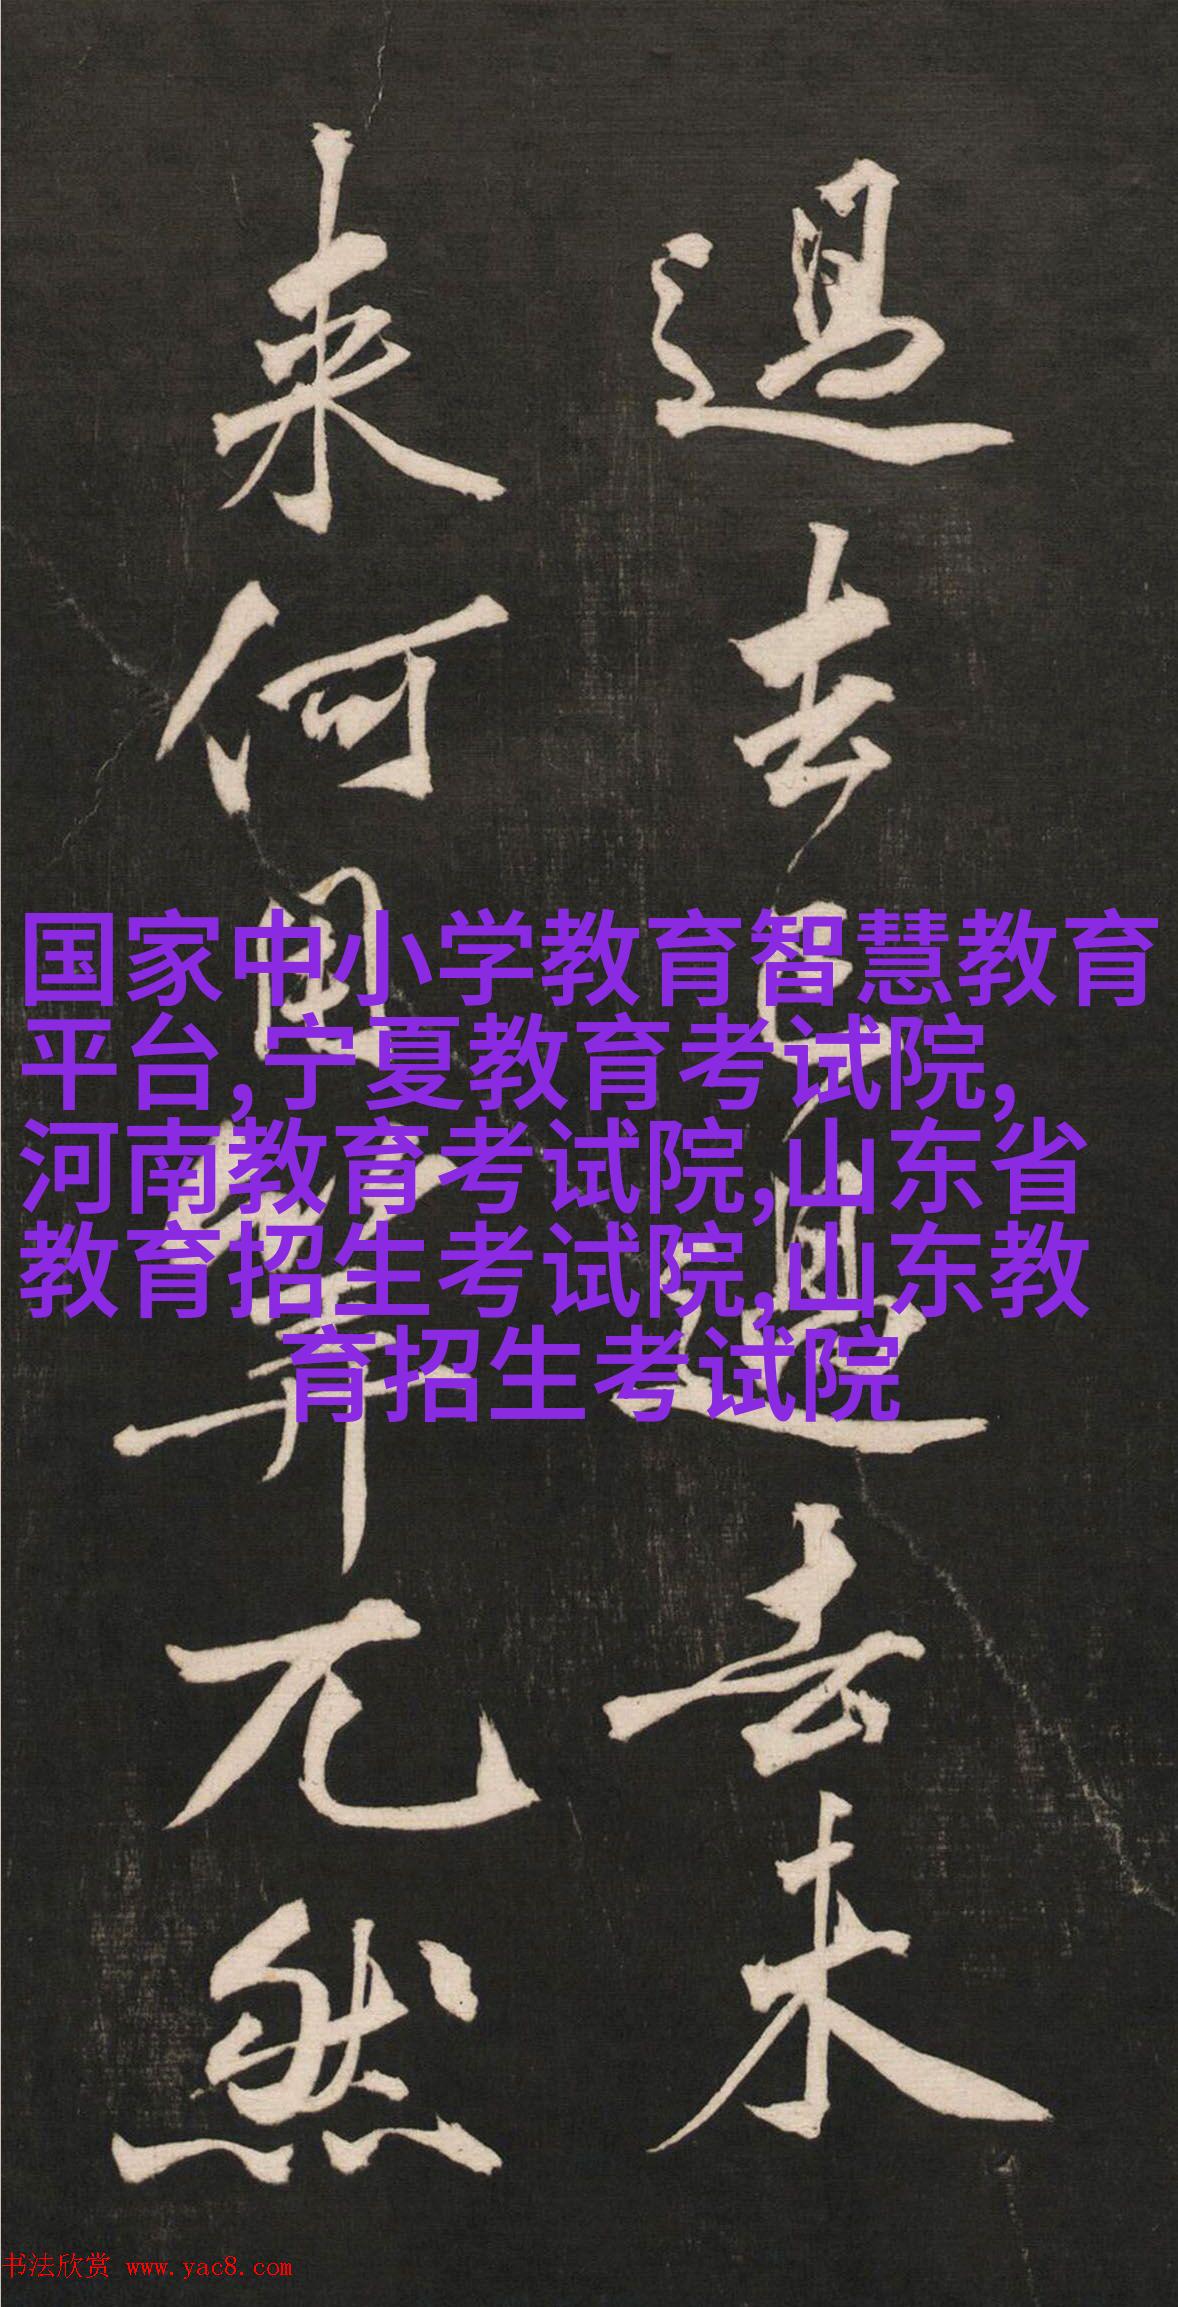 過去已過去未
来何算兀然
国家中小学教育智慧教育
平台,宁夏教育考试院,
河南教育考试院,山东省
教育招生考试院,山东教
育招生考试院
书法欣赏 www.yac8.com